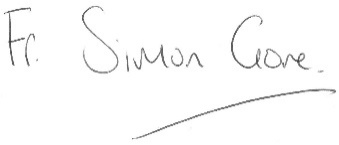 Fr. Simon Gore.